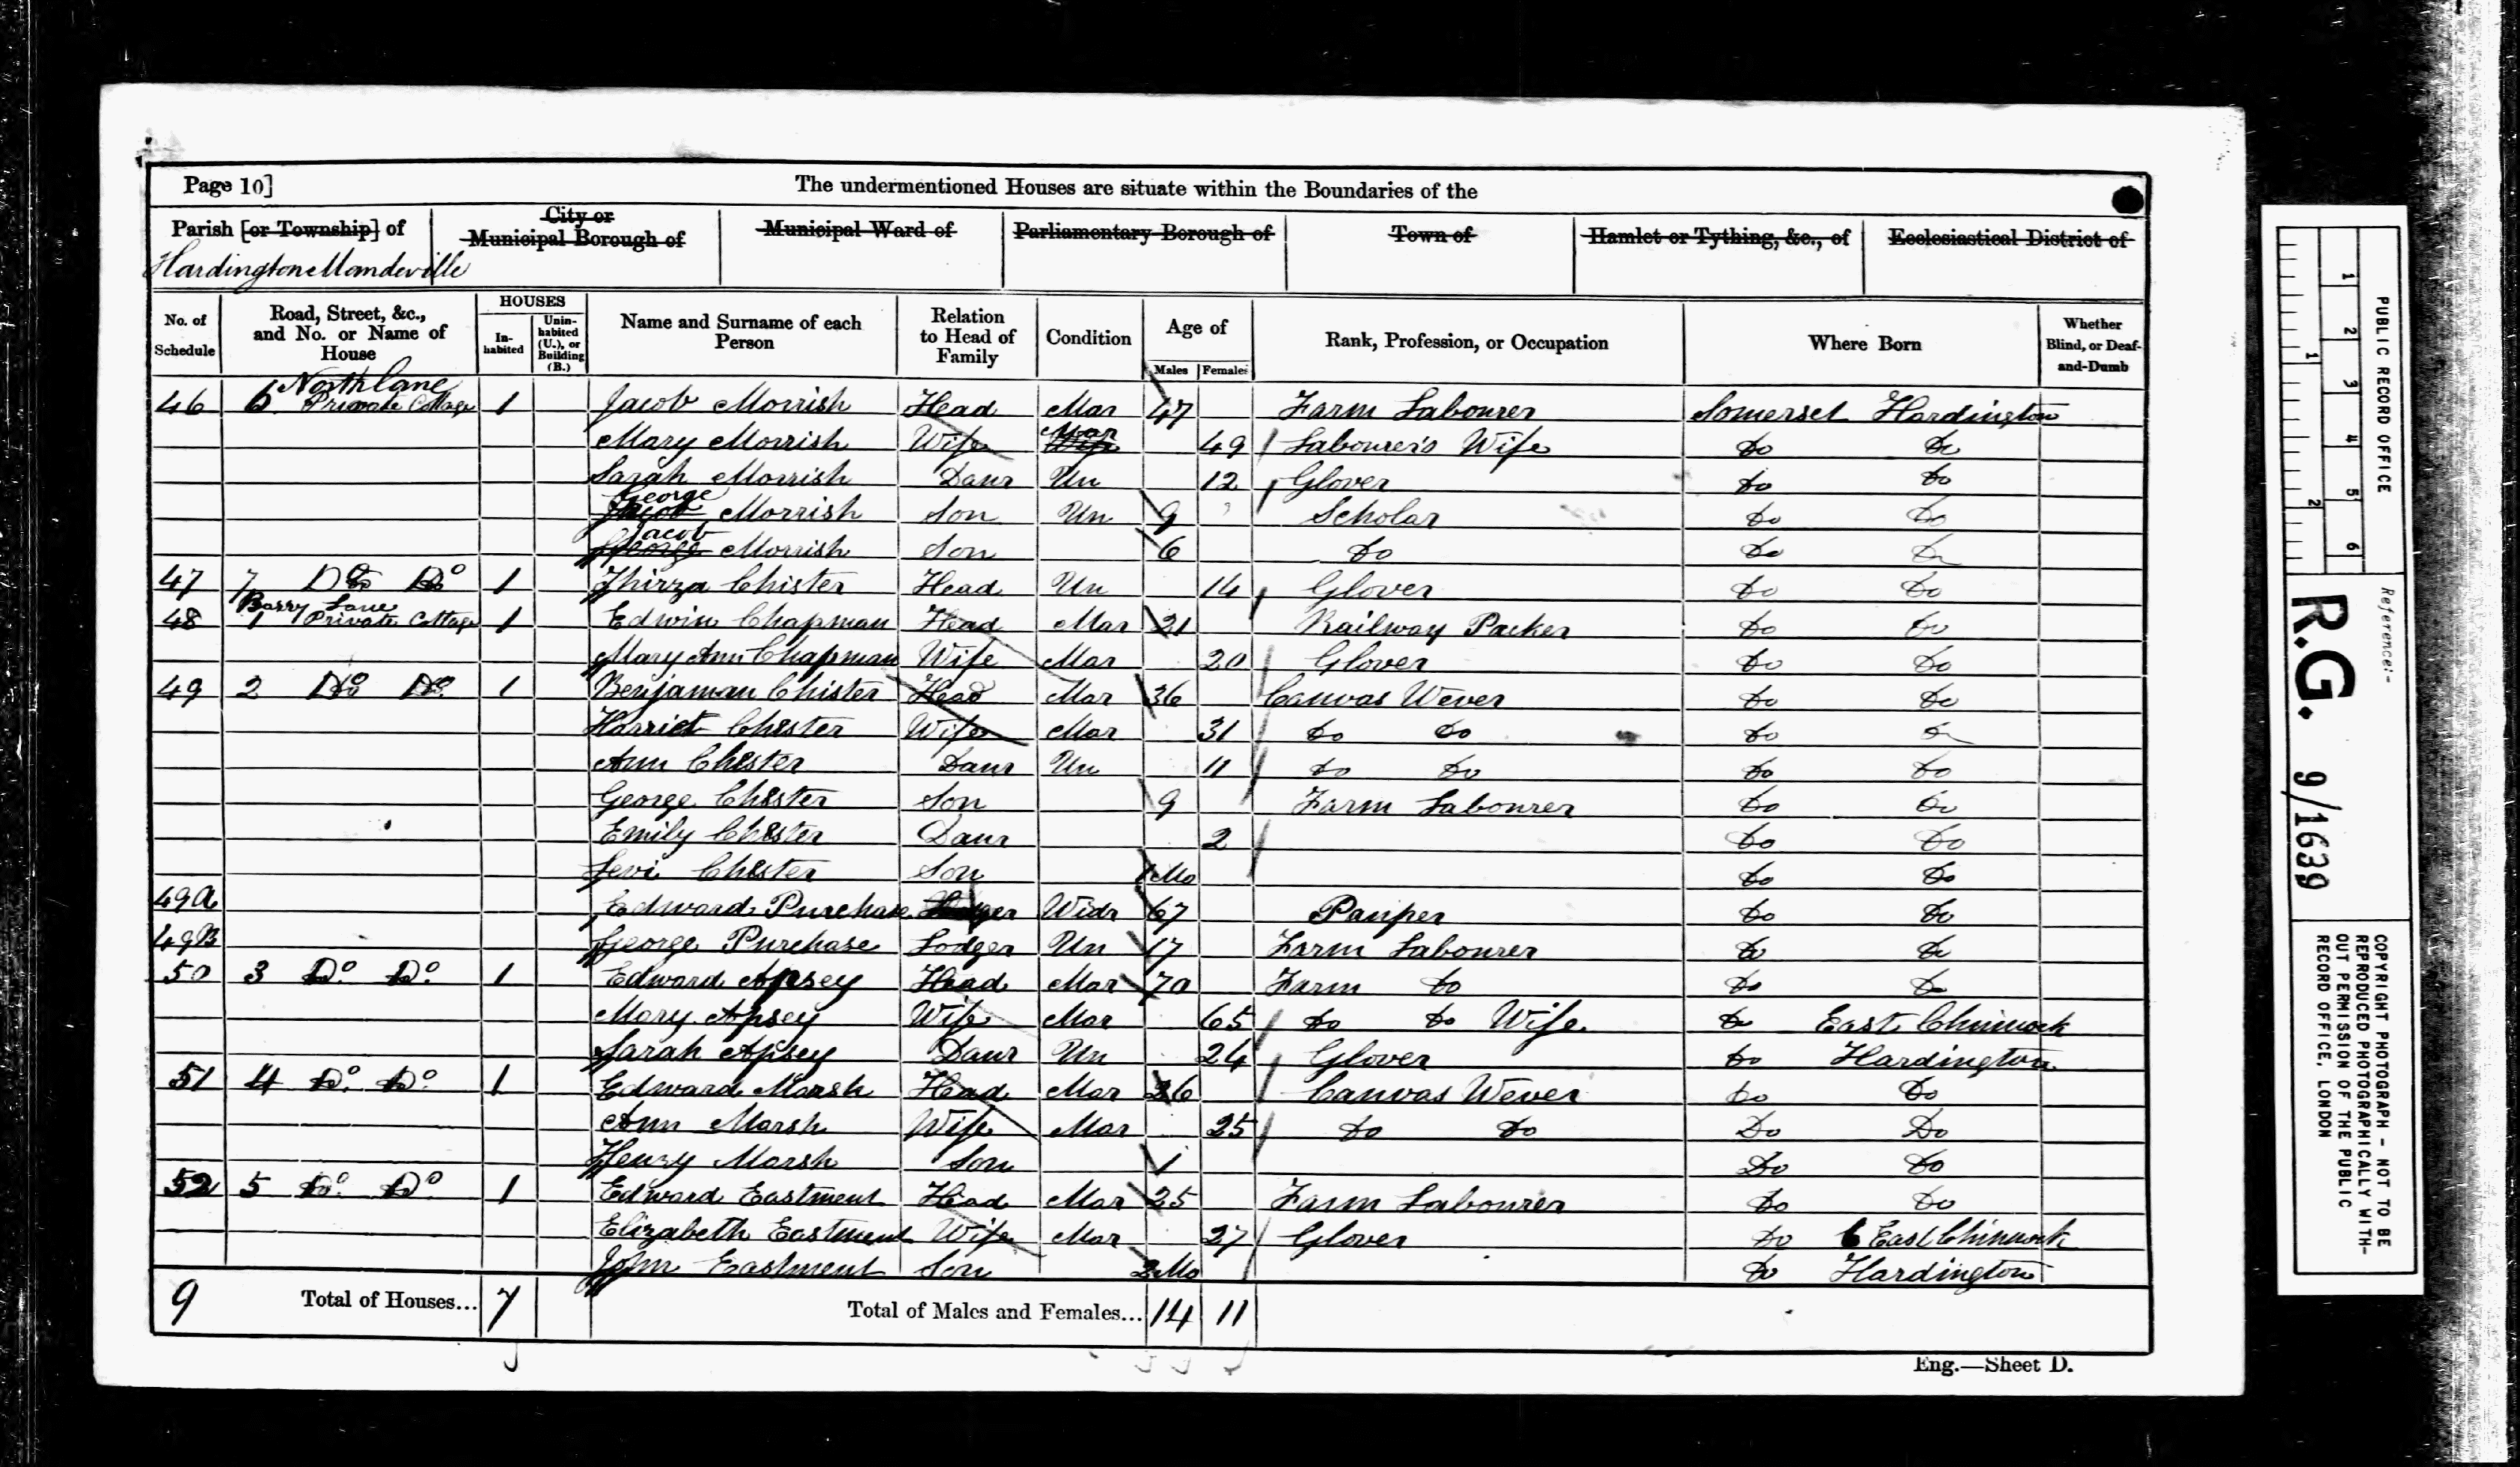 Page 10]
The undermentioned Houses are situate within the Boundaries of the
Parish [or Township] of
City or Municipal Borough of
Municipal Ward of
Parliamentary Borough of
Town of
Hamlet or Tything, &c., of
Ecclesiastical District of
Hardington Mandeville
No. of Schedule
Road, Street, &c., and No. or Name of House
HOUSES
In-habited
Unin-habited (U.), or Building (B.)
Name and Surname of each Person
Relation to Head of Family
Condition
Age of
Males
Females
Rank, Profession, or Occupation
Where Born
Whether Blind, or Deaf-and-Dumb
North Lane
46 6 Private Cottage 1 Jacob Morrish Head Mar 47 Farm Labourer Somerset Hardington
Mary Morrish Wife Mar 49 Labourer's Wife Do Do
Sarah Morrish Daur Un 12 Glover Do Do
George Morrish Son Un 9 Scholar Do Do
Jacob Morrish Son 6 Do Do Do
47 7 Do Do 1 Thirza Chister Head Un 14 Glover Do Do
Barry Lane
48 1 Private Cottage 1 Edwin Chapman Head Mar 21 Railway Packer Do Do
Mary Ann Chapman Wife Mar 20 Glover Do Do
49 2 Do Do 1 Benjaman Chister Head Mar 36 Canvas Wever Do Do
Harriet Chester Wife Mar 31 Do Do Do Do
Ann Chester Daur Un 11 Do Do Do Do
George Chester Son 9 Farm Labourer Do Do
Emily Chester Daur 2 Do Do
Levi Chester Son 1 Mo Do Do
49a Edward Purchase Widr 67 Pauper Do Do
49B George Purchase Lodger Un 17 Farm Labourer Do Do
50 3 Do Do 1 Edward Apsey Head Mar 70 Farm Do Do Do
Mary Apsey Wife Mar 65 Do Do Wife Do East Chinnock
Sarah Apsey Daur Un 24 Glover Do Hardington
51 4 Do Do 1 Edward Marsh Head Mar 26 Canvas Wever Do Do
Ann Marsh Wife Mar 25 Do Do Do Do
Henry Marsh Son 1 Do Do
52 5 Do Do 1 Edward Eastment Head Mar 25 Farm Labourer Do Do
Elizabeth Eastment Wife Mar 27 Glover Do East Chinnock
John Eastment Son 2 Mo Do Hardington
9 Total of Houses... 7 Total of Males and Females... 14 11
Eng.—Sheet D.
PUBLIC RECORD OFFICE
1 2 3 4 5 6
1 2
Reference:-
R.G. 9/1639
COPYRIGHT PHOTOGRAPH - NOT TO BE
REPRODUCED PHOTOGRAPHICALLY WITH-
OUT PERMISSION OF THE PUBLIC
RECORD OFFICE, LONDON